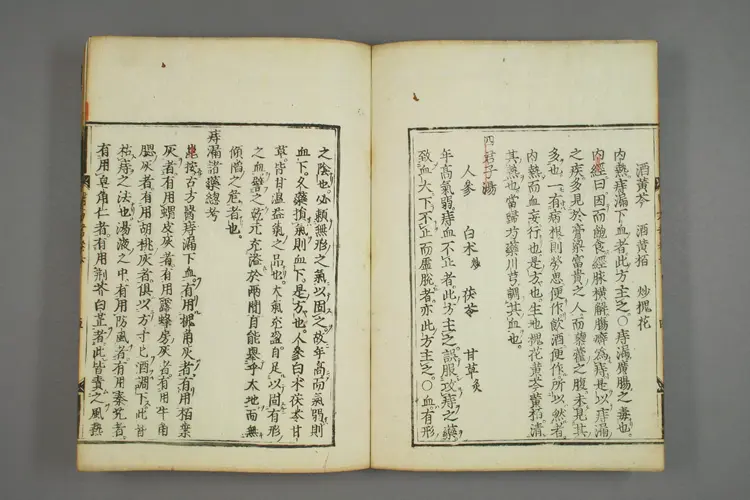 酒黃芩 酒黃栢 炒槐花
內熱痔漏下血者此方主之○痔漏廣腸之毒也
內經曰因而飽食經脉橫解腸癖為痔世以痔漏
之疾多見於膏梁富貴之人而藜藿之腹未見其
多也一有病根則勞思便作飲酒便作所以然者
內熱而血妄行也是方也生地槐花黃芩黃栢清
其熱也當歸芍藥川芎調其血也
四君子湯
人參 白术 茯苓 甘草炙
年高氣弱痔血不止者此方主之誤服攻痔之藥
致血大下不止而虛脫者亦此方主之○血有形
之陰也必賴無形之氣以固之故年高而氣弱則
血下久藥損氣則血下是方也人參白术茯苓甘
草皆甘溫益氣之品也大氣充盈自足以固有形
之血譬之乾元充溢於兩間自能舉乎大地而無
傾陷之危者也
痔漏諸藥總考
崑按古方醫痔漏下血有用槐角灰者有用栢葉
灰者有用蝟皮灰者有用露蜂房灰者有用牛角
䚡灰者有用胡桃灰者俱以方寸匕酒調下此皆
枯痔之法也湯液之中有用防風者有用秦艽者
有用皂角仁者有用荊芥白芷者此皆責之風熱